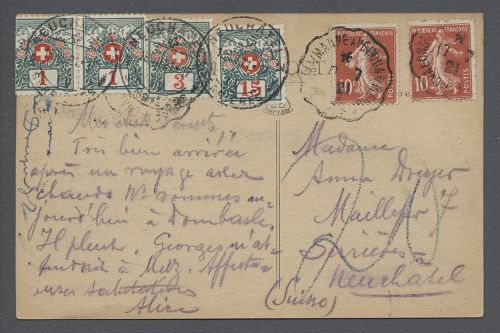 1
1
3
15
NEUCHATEL
REPUBLIQUE FRANÇAISE
10
POSTES
REPUBLIQUE FRANÇAISE
10
POSTES
Très bien arrivée
après un voyage assez
chaud. Ns sommes au-
jourd'hui à Dombasle.
Il pleut. Georges m'at-
tendait à Metz. Affectu-
euses salutations
Alice
Madame
Anna
Maillefer 7
Serrières
Neuchatel
(Suisse)